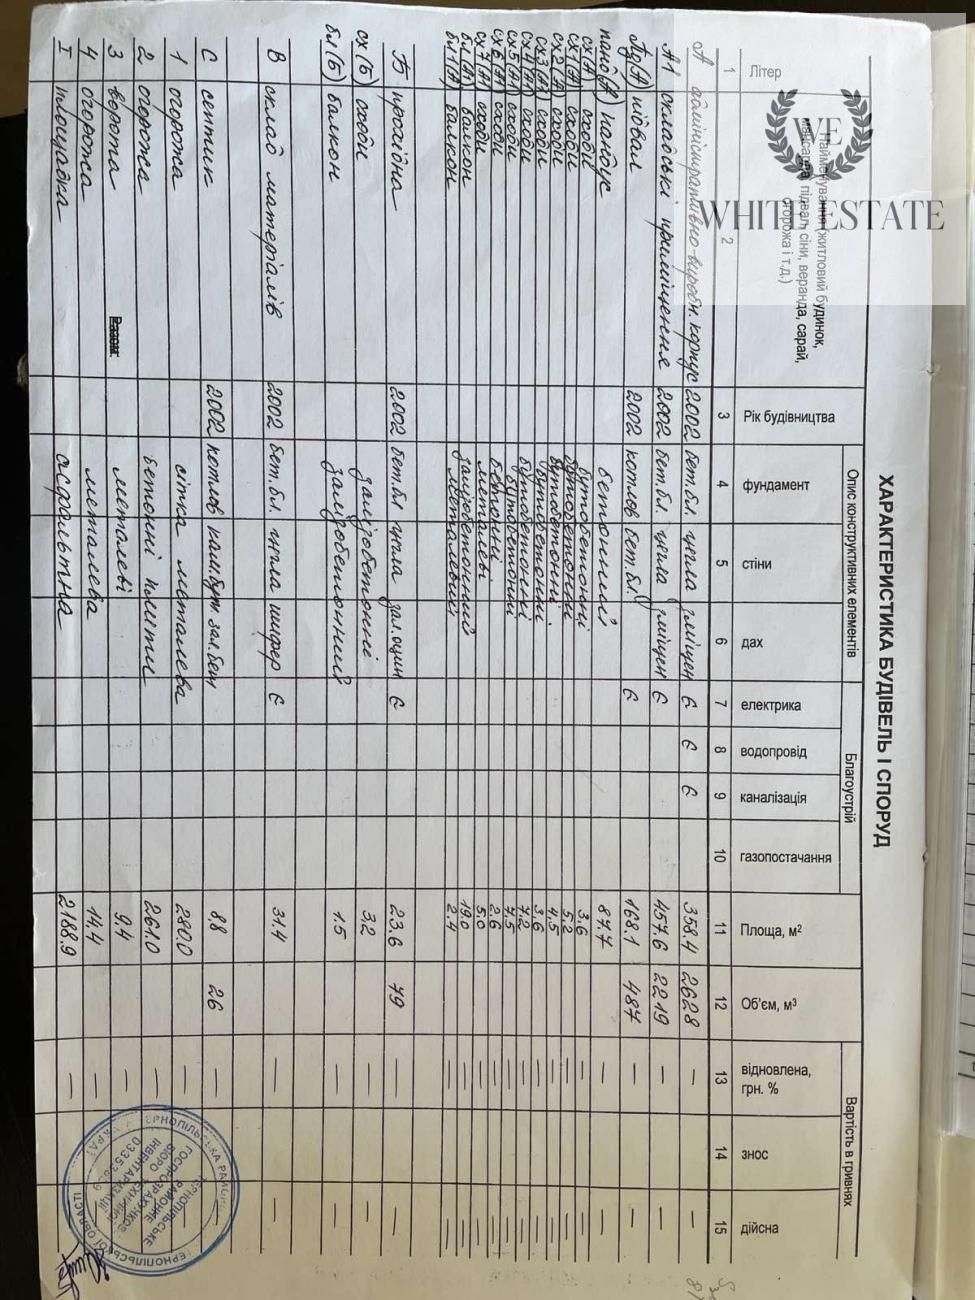 ХАРАКТЕРИСТИКА БУДІВЕЛЬ І СПОРУД
Літер
Найменування (житловий будинок, мансарда, підвал, сіни, веранда, сарай, огорожа і т.д.)
Рік будівництва
Опис конструктивних елементів
фундамент
стіни
дах
Благоустрій
електрика
водопровід
каналізація
газопостачання
Площа, м²
Об'єм, м³
Вартість в гривнях
відновлена, грн. %
знос
дійсна
1 2 3 4 5 6 7 8 9 10 11 12 13 14 15
А адміністративно-виробн. корпус 2002 бет.бл. цегла суміщен є є є 358.4 2628 — —
А1 складські приміщення 2002 бет.бл. цегла суміщен є 457.6 2219 — —
Пд(А) підвал 2002 котлов бет.бл. є 168.1 487 — —
панд(А) пандус бетонний 87.7 — —
сх(А) сходи бутобетонні 3,6 — —
сх1(А) сходи бутобетонні 5,2 — —
сх2(А) сходи бутобетонні 4,5 — —
сх3(А1) сходи бутобетонні 3,6 — —
сх4(А1) сходи бутобетонні 7,2 — —
сх5(А) сходи бутобетонні 7,5 — —
сх6(А) сходи бетонні 2,6 — —
сх7(А1) сходи металеві 5,0 — —
бл(А1) балкон залізобетонний 19,0 — —
бл1(А) балкон металевий 2.4 — —
Б прохідна 2002 бет.бл цегла зал.оцин є 23.6 49 — —
сх(Б) сходи залізобетонні 3,2 — —
бл(Б) балкон залізобетонний 1.5 — —
В склад матеріалів 2002 бет.бл. цегла шифер є 31.4
С септик 2002 котлов кам.бут. зал.бет 8,8 26 — —
1 огорожа сітка металева 220.0 — —
2 огорожа бетонні плити 261.0 —
3 ворота металеві 9.4 —
4 огорожа металева 14,4 —
І площадка асфальтна 2188.9 —
Разом:
WE
WHITE ESTATE
ТЕРНОПІЛЬСЬКЕ
РАЙОННЕ
ГОСПРОЗРАХУНКОВЕ
БЮРО ТЕХНІЧНОЇ
ІНВЕНТАРИЗАЦІЇ